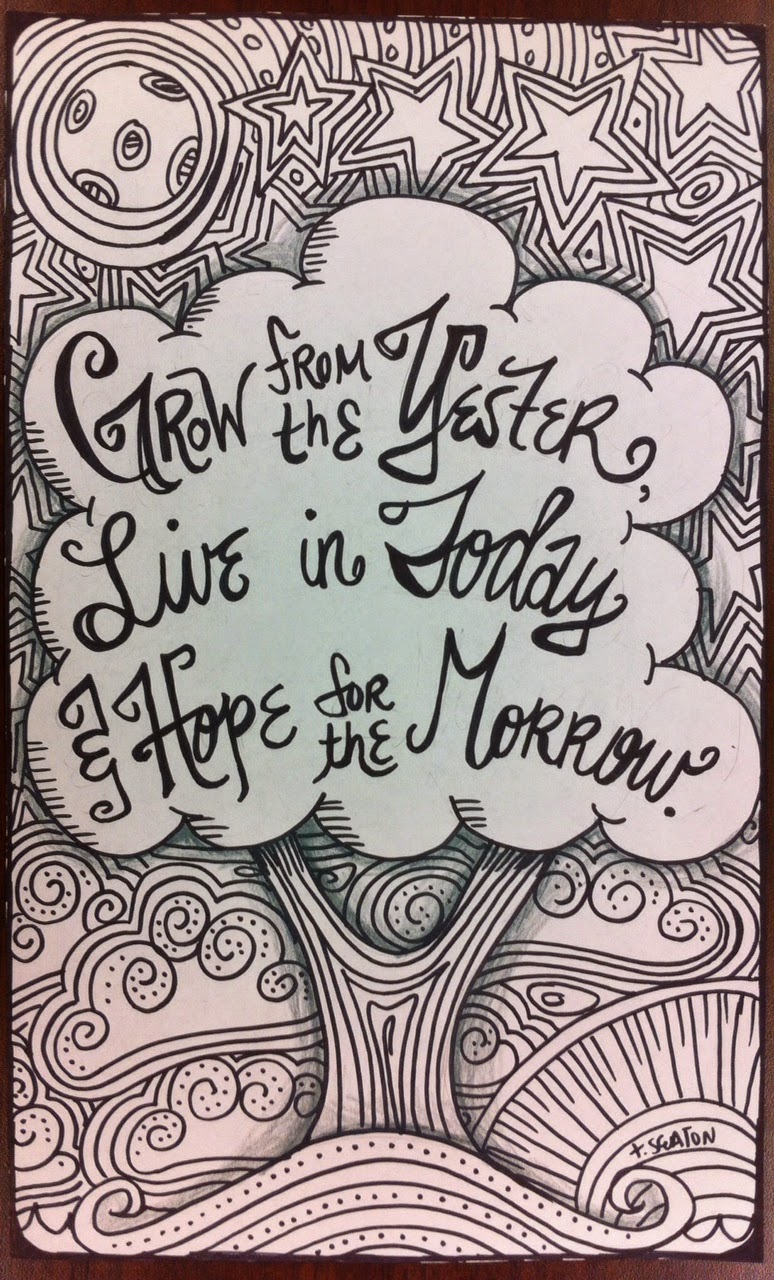 Grow from the Yester,
Live in Today
& Hope for the Morrow.
t. Seaton